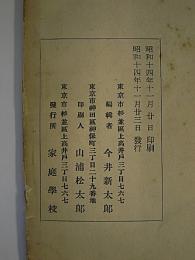 昭和十四年十一月廿日印刷
昭和十四年十一月廿三日發行
東京市杉並區上高井戸三丁目七六七
編輯者 今井新太郎
東京市神田區神保町三丁目二十九番地
印刷人 山浦松太郎
東京市杉並區上高井戸三丁目七六七
發行所 家庭學校